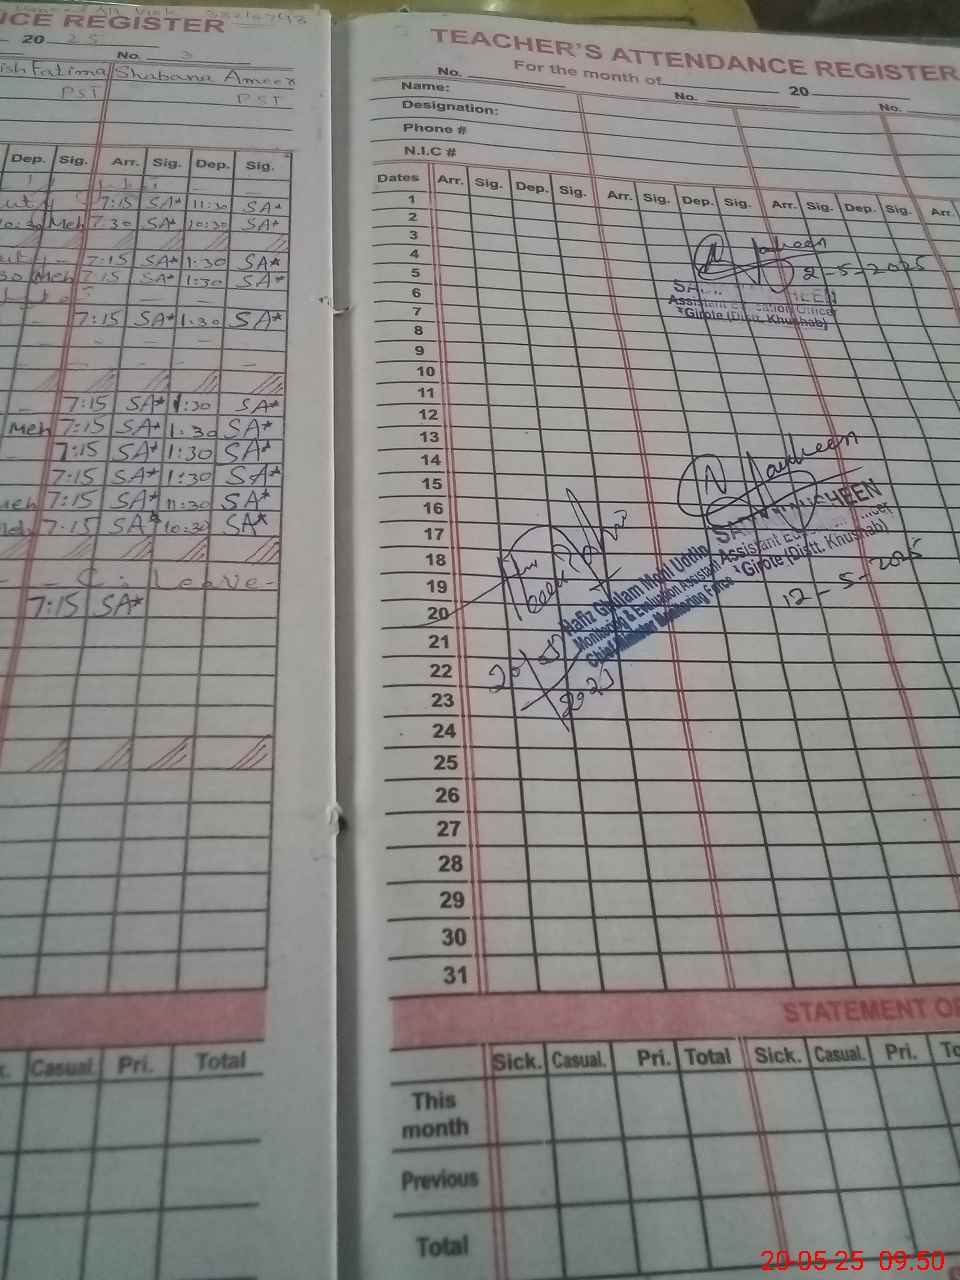 CE REGISTER
20 25
No. 3
ish Fatima Shabana Ameer
PST PST
Dep. Sig. Arr. Sig. Dep. Sig.
7:15 SA* 11:30 SA*
10:30 Meh 7:30 SA* 10:30 SA*
7:15 SA* 1:30 SA*
30 Meh 7:15 SA* 1:30 SA*
7:15 SA* 1:30 SA*
7:15 SA* 1:30 SA*
Meh 7:15 SA* 1:30 SA*
7:15 SA* 1:30 SA*
7:15 SA* 1:30 SA*
Meh 7:15 SA* 11:30 SA*
Meh 7:15 SA* 10:30 SA*
- - C. Leave -
7:15 SA*
Casual. Pri. Total
TEACHER'S ATTENDANCE REGISTER
For the month of 20
No. No. No.
Name:
Designation:
Phone #
N.I.C #
Dates Arr. Sig. Dep. Sig. Arr. Sig. Dep. Sig. Arr. Sig. Dep. Sig. Arr.
1
2
3
4
5
6
7
8
9
10
11
12
13
14
15
16
17
18
19
20
21
22
23
24
25
26
27
28
29
30
31
2-5-2025
Assistant Education Officer
Girote (Distt. Khushab)
Assistant
Girote (Distt. Khushab)
12-5-2025
Hafiz Ghulam Mohi Uddin
Monitoring & Evaluation Assistant
Chief Minister Monitoring Force
STATEMENT OF
Sick. Casual. Pri. Total Sick. Casual. Pri.
This month
Previous
Total
20-05-25 09.50